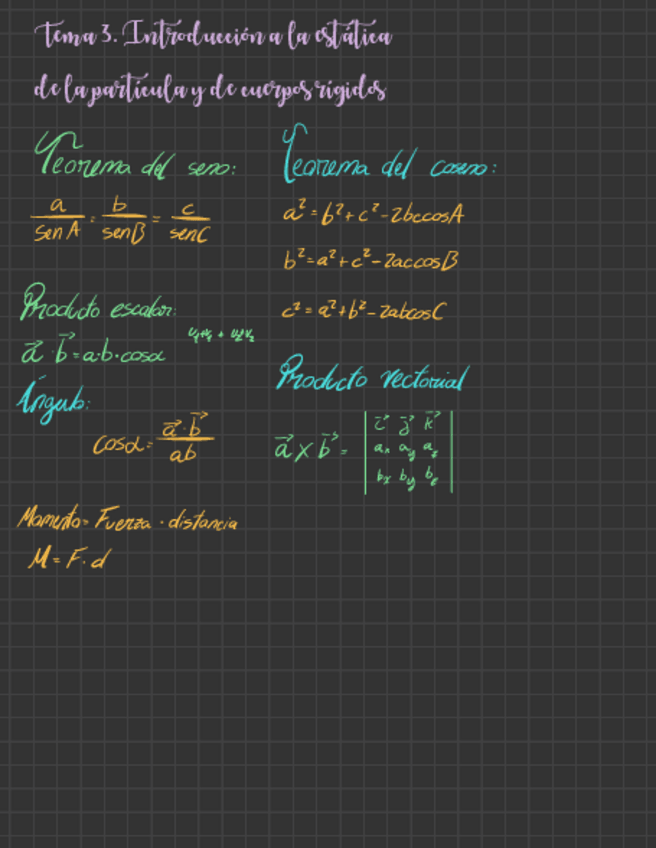 Tema 3. Introducción a la estática
de la partícula y de cuerpos rígidos
Teorema del seno:
a/sen A = b/sen B = c/sen C
Teorema del coseno:
a² = b² + c² - 2bc cos A
b² = a² + c² - 2ac cos B
c² = a² + b² - 2ab cos C
Producto escalar:
a⃗ · b⃗ = a·b·cos α
Ángulo:
cos α = a⃗ · b⃗ / ab
Producto vectorial
a⃗ x b⃗ = | i⃗ j⃗ k⃗ |
| aₓ a_y a_z |
| bₓ b_y b_z |
Momento = Fuerza · distancia
M = F · d